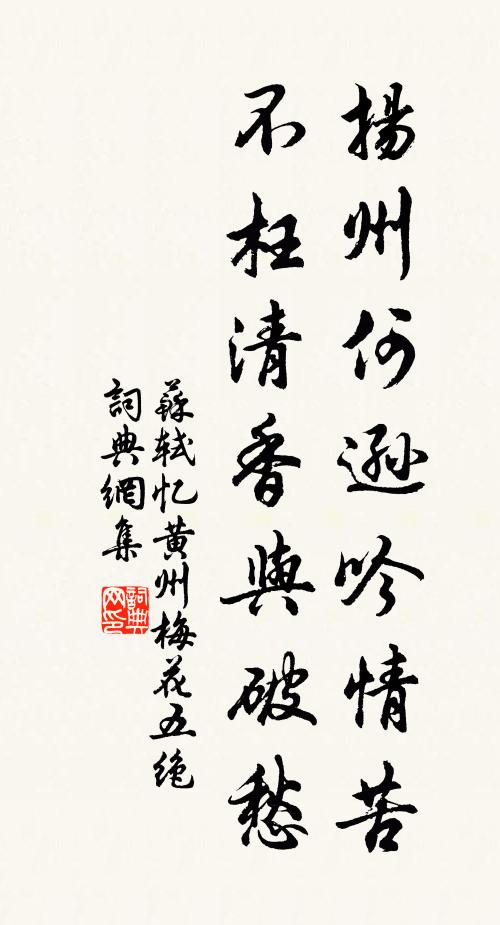 揚州何遜吟情苦
不枉清香與破愁
蘇軾忆黄州梅花五绝
詞典網集
詞典网印